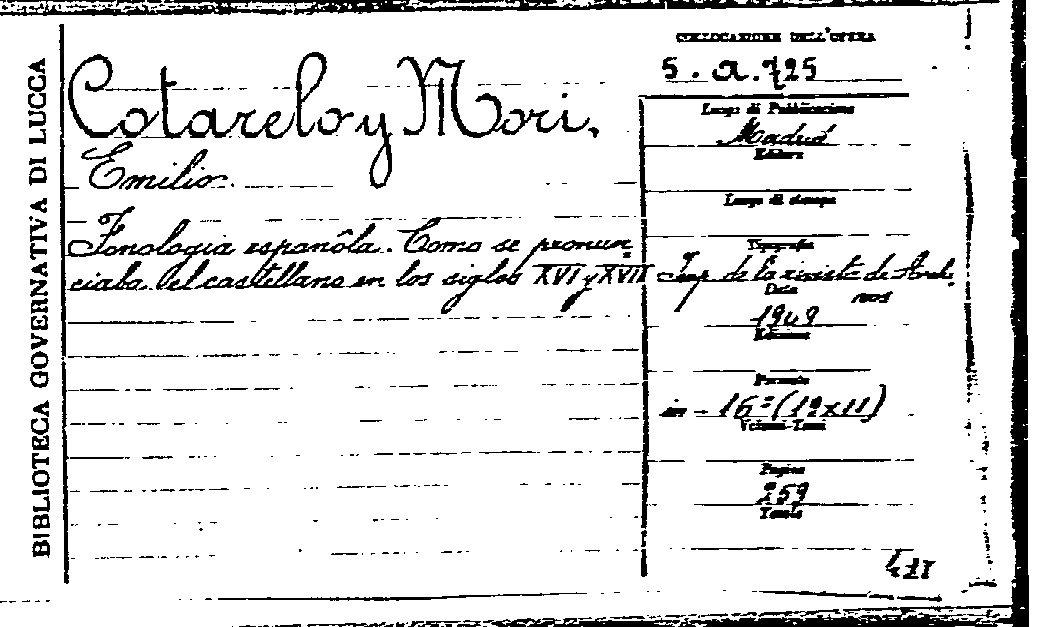 BIBLIOTECA GOVERNATIVA DI LUCCA
Cotarelo y Mori.
Emilio.
Fonologia espanôla. Como se pronun=
ciaba el castellano en los siglos XVI y XVII
COLLOCAZIONE DELL'OPERA
5. a. 725
Luogo di Pubblicazione
Madrid
Editore
Luogo di stampa
Tipografia
Imp. de la rivista de Arch.
Data
1909
Edizione
Formato
in - 16° (19x11)
Volumi-Tomi
Pagine
259
Tavole